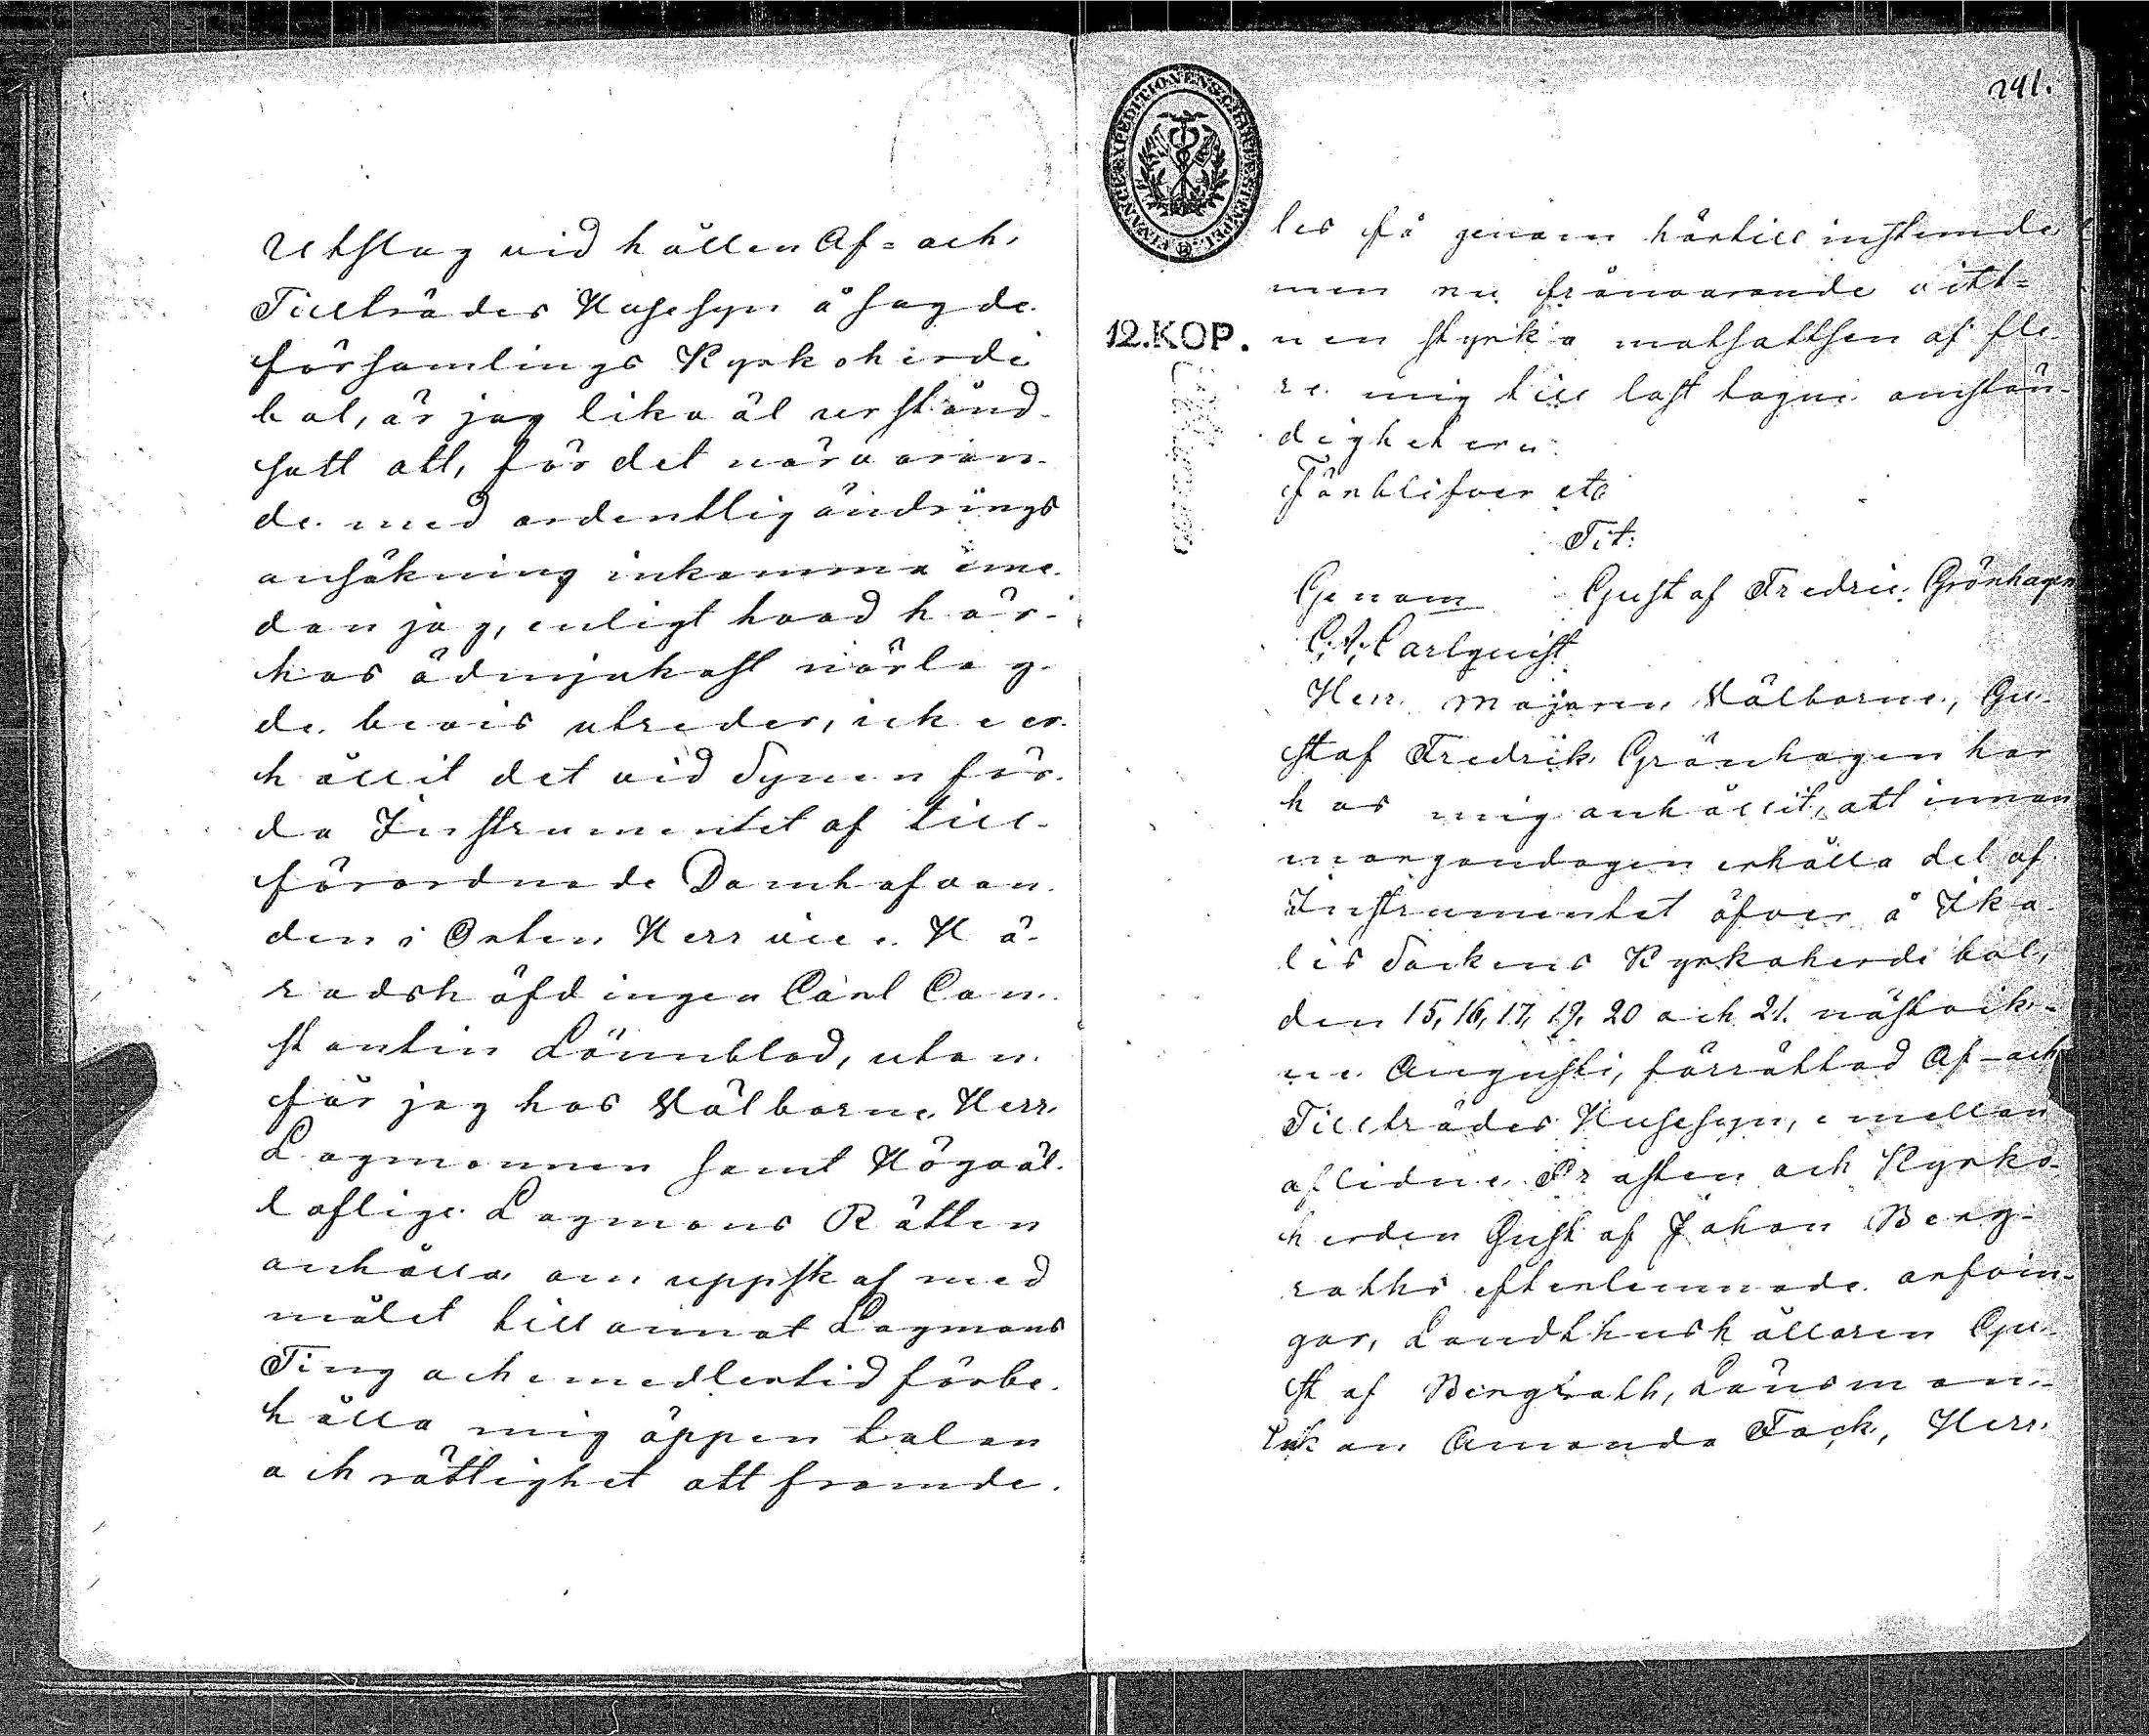 Utslag vid hållen Af= och
Tillträdes Husesyn å sagde
församlings Kyrkoherde
bol, är jag lika äl urstånd
satt att, för det närvaran-
de med ordentlig ändrings
ansökning inkomma eme-
dan jag, enligt hvad här-
hos ödmjukast närlag-
de bevis utreder, icke er-
hållit det vid Synen för-
da Instrumentet af till-
förordnade Domhafvan-
den i Orten Herr vice Hä-
radshöfdingen Carl Con-
stantin Lönnblad, utan
får jag hos Välborne Herr
Lagmannen samt Högväl-
loflige Lagmans Rätten
anhålla om uppskof med
målet till annat Lagmans
Ting och emedlertid förbe-
hålla mig öppen talan
och rättighet att framde-
241.
FINANCE EXPEDITIONENS CHARTÆ STEMPEL
12. KOP.
les få genom härtill instemde
men nu frånvarande vitt-
nen styrka motsattsen af fle-
re mig till last tagne omstän-
digheter.
Förblifver etc
Tit:
Genom Gustaf Fredric Grönhagen
C. A. Carlquist
Herr Majoren Välborne, Gu-
staf Fredrik Grönhagen har
hos mig anhållit, att innan
morgondagen erhålla del af
Instrumentet öfver å Ika-
lis Sockens Kyrkoherde bol,
den 15, 16, 17, 19, 20 och 21. nästvik-
ne Augusti, förrättad Af- och
Tillträdes Husesyn, emellan
aflidne Prosten och Kyrko-
herden Gustaf Johan Berg-
roths efterlemnade arfvin-
gar, Landthushållaren Gu-
staf Bergroth, Länsman-
skan Amanda Fock, Herr